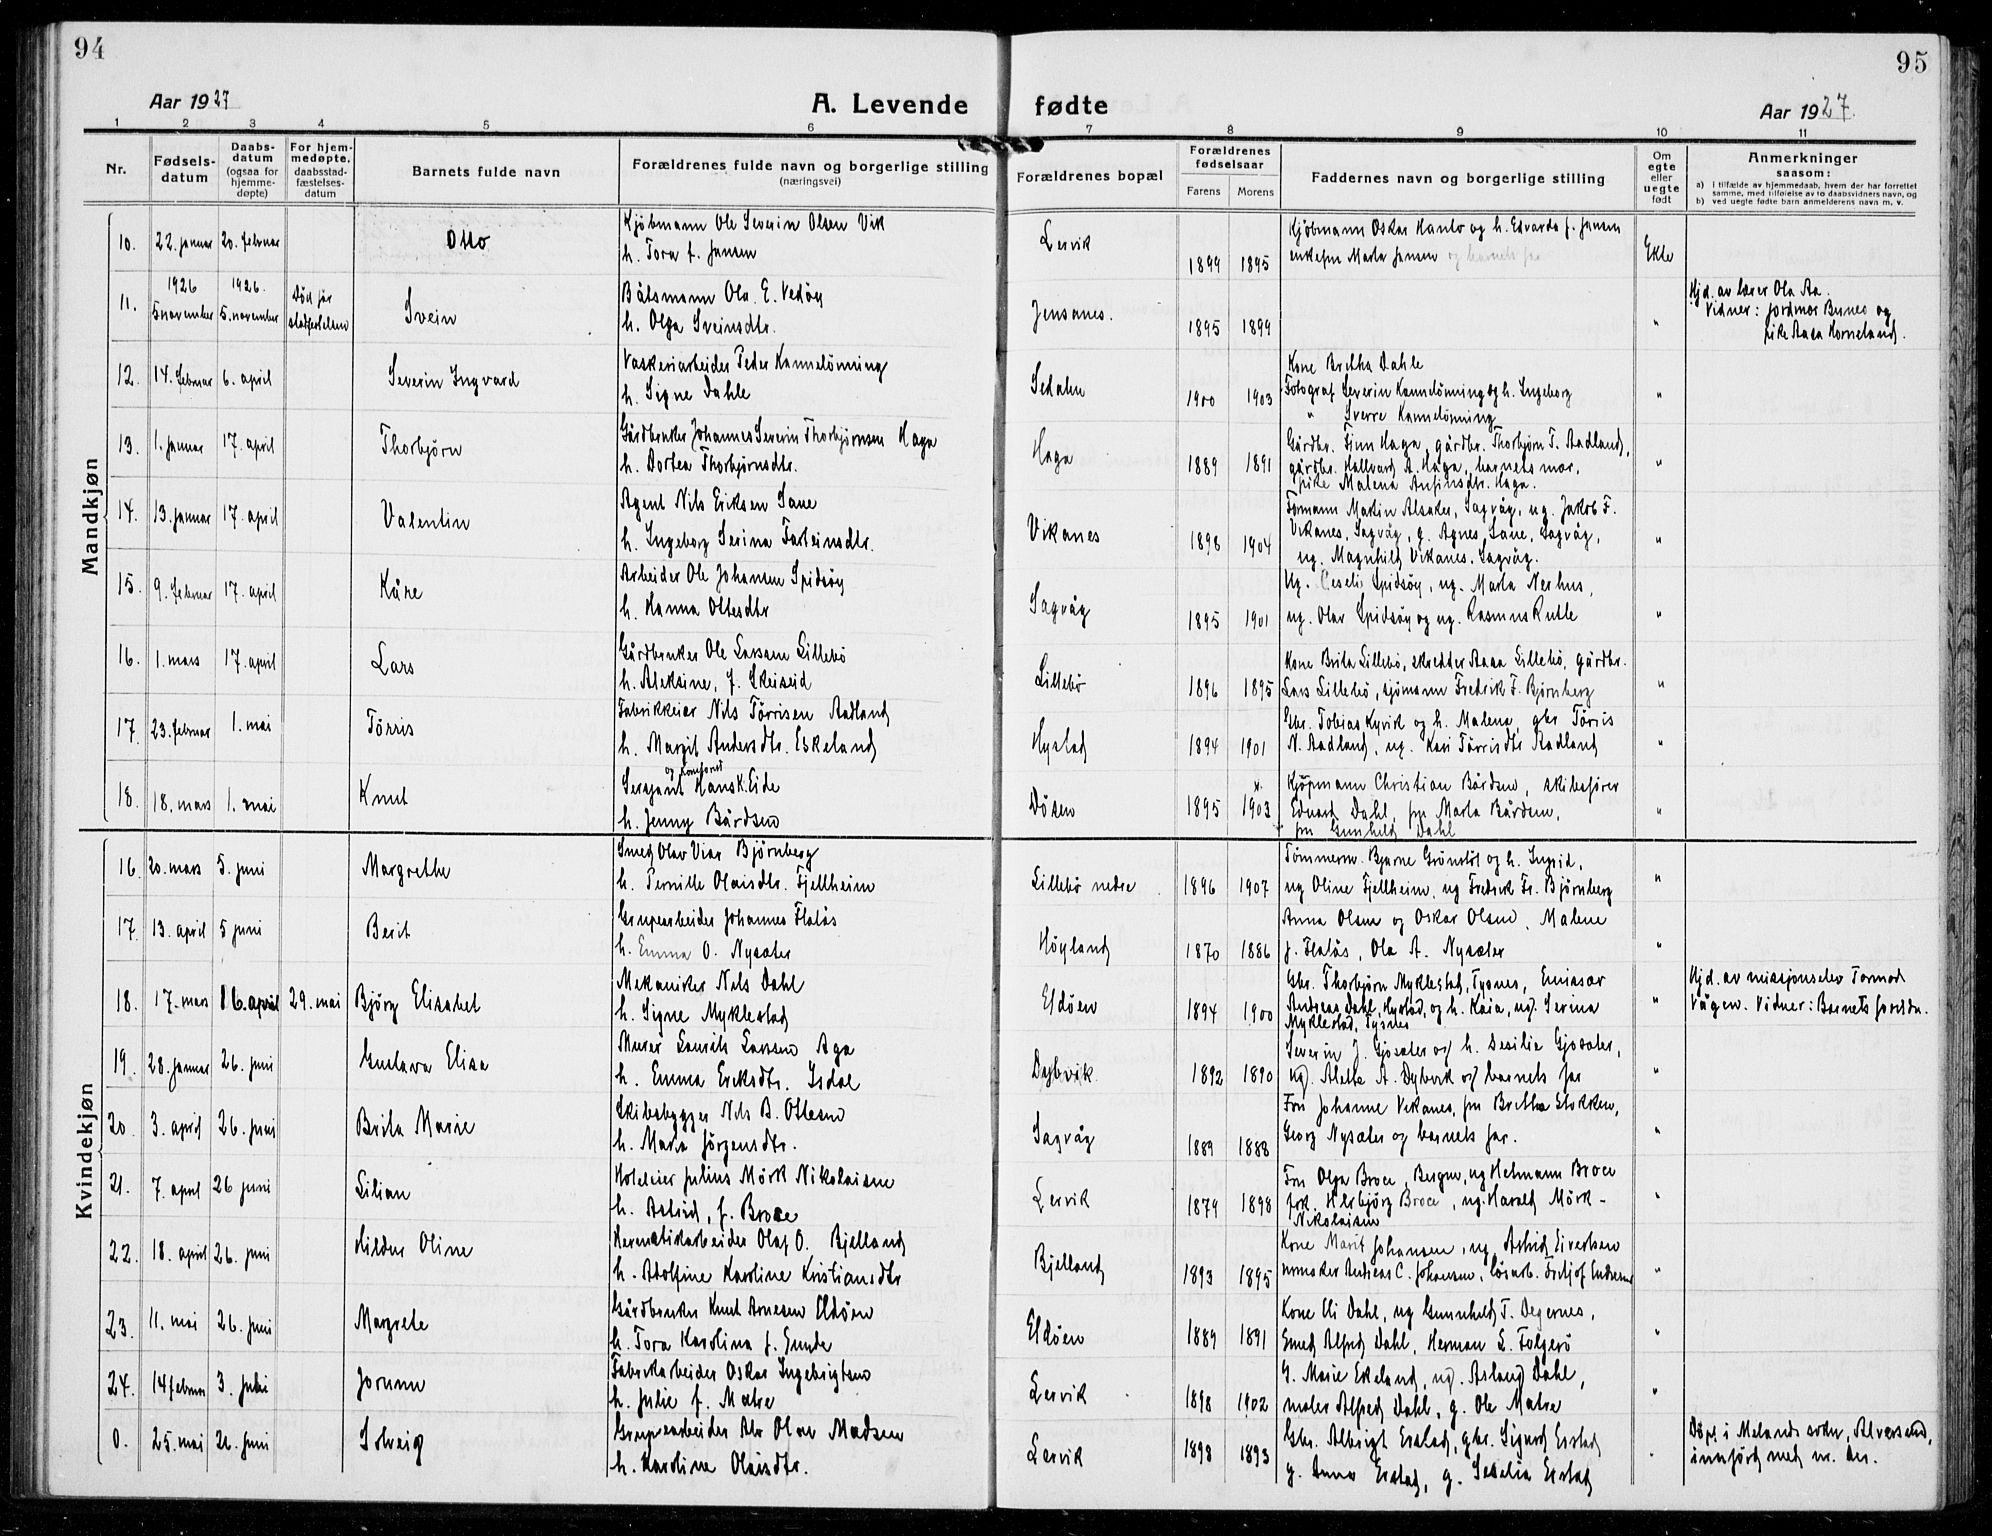 94
95
Aar 1927
A. Levende fødte
Aar 1927.
1 2 3 4 5 6 7 8 9 10 11
Nr.
Fødsels-
datum
Daabs-
datum
(ogsaa for
hjemme-
døpte)
For hjem-
medøpte,
daabsstad-
fæstelses-
datum
Barnets fulde navn
Forældrenes fulde navn og borgerlige stilling
(næringsvei)
Forældrenes bopæl
Forældrenes
fødselsaar
Farens Morens
Faddernes navn og borgerlige stilling
Om
egte
eller
uegte
født
Anmerkninger
saasom:
a) i tilfælde av hjemmedaab, hvem der har forrettet
samme, med tilføielse av to daabsvidners navn, og
b) ved uegte fødte barn anmelderens navn m. v.
Mandkjøn
10. 22. januar 20. februar Otto
Kjøbmann Ole Severin Olsen Vik
h. Tora f. Jansen
Lervik 1899 1895
Kjøbmann Oskar Hanto og h. Edvarda f. Jansen
enkefru Marta Jansen og barnets far
Ekte
11. 1926 5 november 1926. 5. november Død før stadfestelsen Svein
Båtsmann Ola E. Vedøy
h. Olga Sveinsdtr.
Jensanes. 1895 1899 "
Hjd. av lærer Ola Aa.
Vidner: jordmor Bunes og
pike Aasa Horneland.
12. 14. februar 6. april Severin Ingvard
Vaskeriarbeider Peder Kannelønning
h. Signe Dahle
Sedalen 1900 1903
Kone Bretha Dahle
Fotograf Severin Kannelønning og h. Ingeborg
" Sverre Kannelønning
"
13. 1. januar 17. april Thorbjørn
Gårdbruker Johannes Severin Thorbjørnsen Haga
h. Dortea Thorbjørnsdtr.
Haga 1889 1891
Gårdbr. Finn Haga, gårdbr. Thorbjørn T. Aadland,
gårdbr. Hallvard A. Haga, barnets mor,
pike Malena Anfinsdtr. Haga.
"
14. 13. januar 17. april Valentin
Agent Nils Eriksen Sane
h. Ingeborg Serina Farteinsdtr.
Vikanes 1898 1904
Formann Martin Alsaker, Sagvåg, ug. Jakob F.
Vikanes, Sagvåg, g. Agnes Sane, Sagvåg,
ug. Magnhild Vikanes, Sagvåg.
"
15. 9. februar 17. april Kåre
Arbeider Ole Johansen Spidsøy
h. Hanna Ottesdtr
Sagvåg 1895 1901
Ug. Ceselie Spidsøy, ug. Marta Nerhus,
ug. Olav Spidsøy og ug. Rasmus Rutle
"
16. 1. mars 17. april Lars
Gårdbruker Ole Larsen Lillebø
h. Aleksine, f. Skeiseid
Lillebø 1896 1895
Kone Brita Lillebø, skredder Aasa Lillebø, gårdbr.
Lars Lillebø, sjømann Fredrik F. Bjørnberg
"
17. 23. februar 1. mai Tørris
Fabrikkeier Nils Tørrisen Aadland
h. Margit Andersdtr. Eskeland
Hystad 1894 1901
Gbr. Tobias Kyvik og h. Malena, gbr Tørris
N. Aadland, ug. Kari Tørrisdtr Aadland
"
18. 18. mars 1. mai Knut
Sersjant og kontorist Hans K. Eide
h. Jenny Bårdsen
Døsen 1895 1903
Kjøpmann Christian Bårdsen, skibsfører
Edvard Dahl, fru Marta Bårdsen,
fru Gunhild Dahl
"
Kvindekjøn
16. 20. mars 5. juni Margrethe
Smed Olav Viar Bjørnberg
h. Pernille Olaisdtr. Fjellheim
Lillebø nedre 1896 1907
Tømmerm. Bjarne Grønstøl og h. Ingrid,
ug Oline Fjellheim, ug Fredrik Fr. Bjørnberg
"
17. 13. april 5 juni Berit
Grupearbeider Johannes Flatås
h. Emma O. Nysæter
Høyland 1870 1886
Anna Olsen og Oskar Olsen, Malene
J. Flatås, Ola A. Nysæter
"
18. 17. mars 16. april 29. mai Bjørg Elisabet
Mekaniker Nils Dahl
h. Signe Myklestad
Eldøen 1894 1900
Gbr. Thorbjørn Myklestad, Tysnes, Emissær
Andreas Dahl, Hystad, og h. Kaia, ug. Serina
Myklestad, Tysnes
"
Hjd. av missjonselev Tormod
Vågen. Vidner: Barnets foreldre.
19. 28. januar 26. juni Gustava Elisa
Murer Laurits Larsen Aga
h. Emma Eriksdtr. Isdal
Dybvik. 1892 1890
Severin J. Gjøsæter og h. Sesilie Gjøsæter,
ug. Alette A. Dybvik og barnets far
"
20. 3. april 26. juni Brita Marie
Skibsbygger Nils B. Ottesen
h. Maria Jørgensdtr.
Sagvåg 1889 1888
Fru Johanne Vikanes, fru Bretha Stokken,
Georg Nysæter og barnets far.
"
21. 7. april 26 juni Lilian
Hoteleier Julius Mörk Nikolaisen
h. Astrid, f. Broce
Lervik 1879 1898
Fru Olga Broce, Bergen, ug Hermann Broce
frk. Herbjørg Broce, ug. Harald Mörk-
Nikolaisen
"
22. 18. april 26. juni Hildur Oline
Hermetikarbeider Olaf O. Bjelland
h. Adolfine Karoline Kristiansdtr
Bjelland 1893 1895
Kone Marit Johansen, ug. Astrid Sivertsen
urmaker Andreas C. Johansen, løsarb. Fritjof Endresen
"
23. 11. mai 26. juni Margrete
Gårdbruker Knut Arnesen Eldøen
h. Tora Karolina f. Gunde
Eldøen 1889 1891
Kone Eli Dahl, ug Gunnhild T. Degernes,
Smed Alfred Dahl, Herman E. Folgerø
"
24. 14 februar 3. juli Jorunn
Fabrikarbeider Oskar Ingebrigtsen
h. Julie f. Matre
Lervik 1898 1902
G. Marie Eskeland, ug. Aslaug Dahl,
maler Alfred Dahl, g. Ole Matre
"
0. 25. mai 26. juni Solveig
Grupearbeider Alv Olav Madsen
h. Karoline Olaisdtr.
Lervik 1898 1893
Gbr. Albrigt Erstad, gbr. Sigurd Erstad
g. Anna Erstad, g. Seselia Erstad
"
Døpt i Melands sokn, Alversund,
innførd med nr. der.